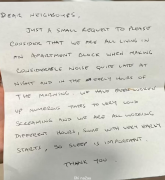 DEAR NEIGHBOURS,
JUST A SMALL REQUEST TO PLEASE
CONSIDER THAT WE ARE ALL LIVING IN
AN APARTMENT BLOCK WHEN MAKING
CONSIDERABLE NOISE QUITE LATE AT
NIGHT AND IN THE EARLY HOURS OF
THE MORNING. WE HAVE BEEN WOKEN
UP NUMEROUS TIMES TO VERY LOUD
SCREAMING AND WE ARE ALL WORKING
DIFFERENT HOURS, SOME WITH VERY EARLY
STARTS, SO SLEEP IS IMPORTANT.
THANK YOU